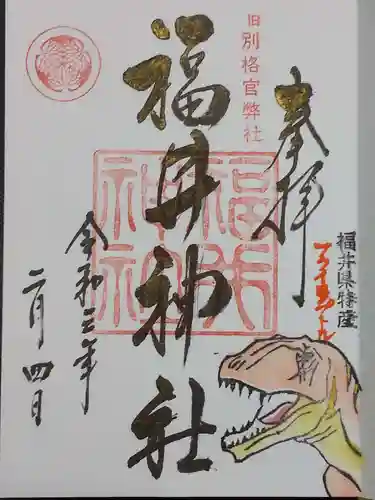 奉拝
福井県特産
旧別格官幣社
福井神社
福井神社
令和三年
二月四日